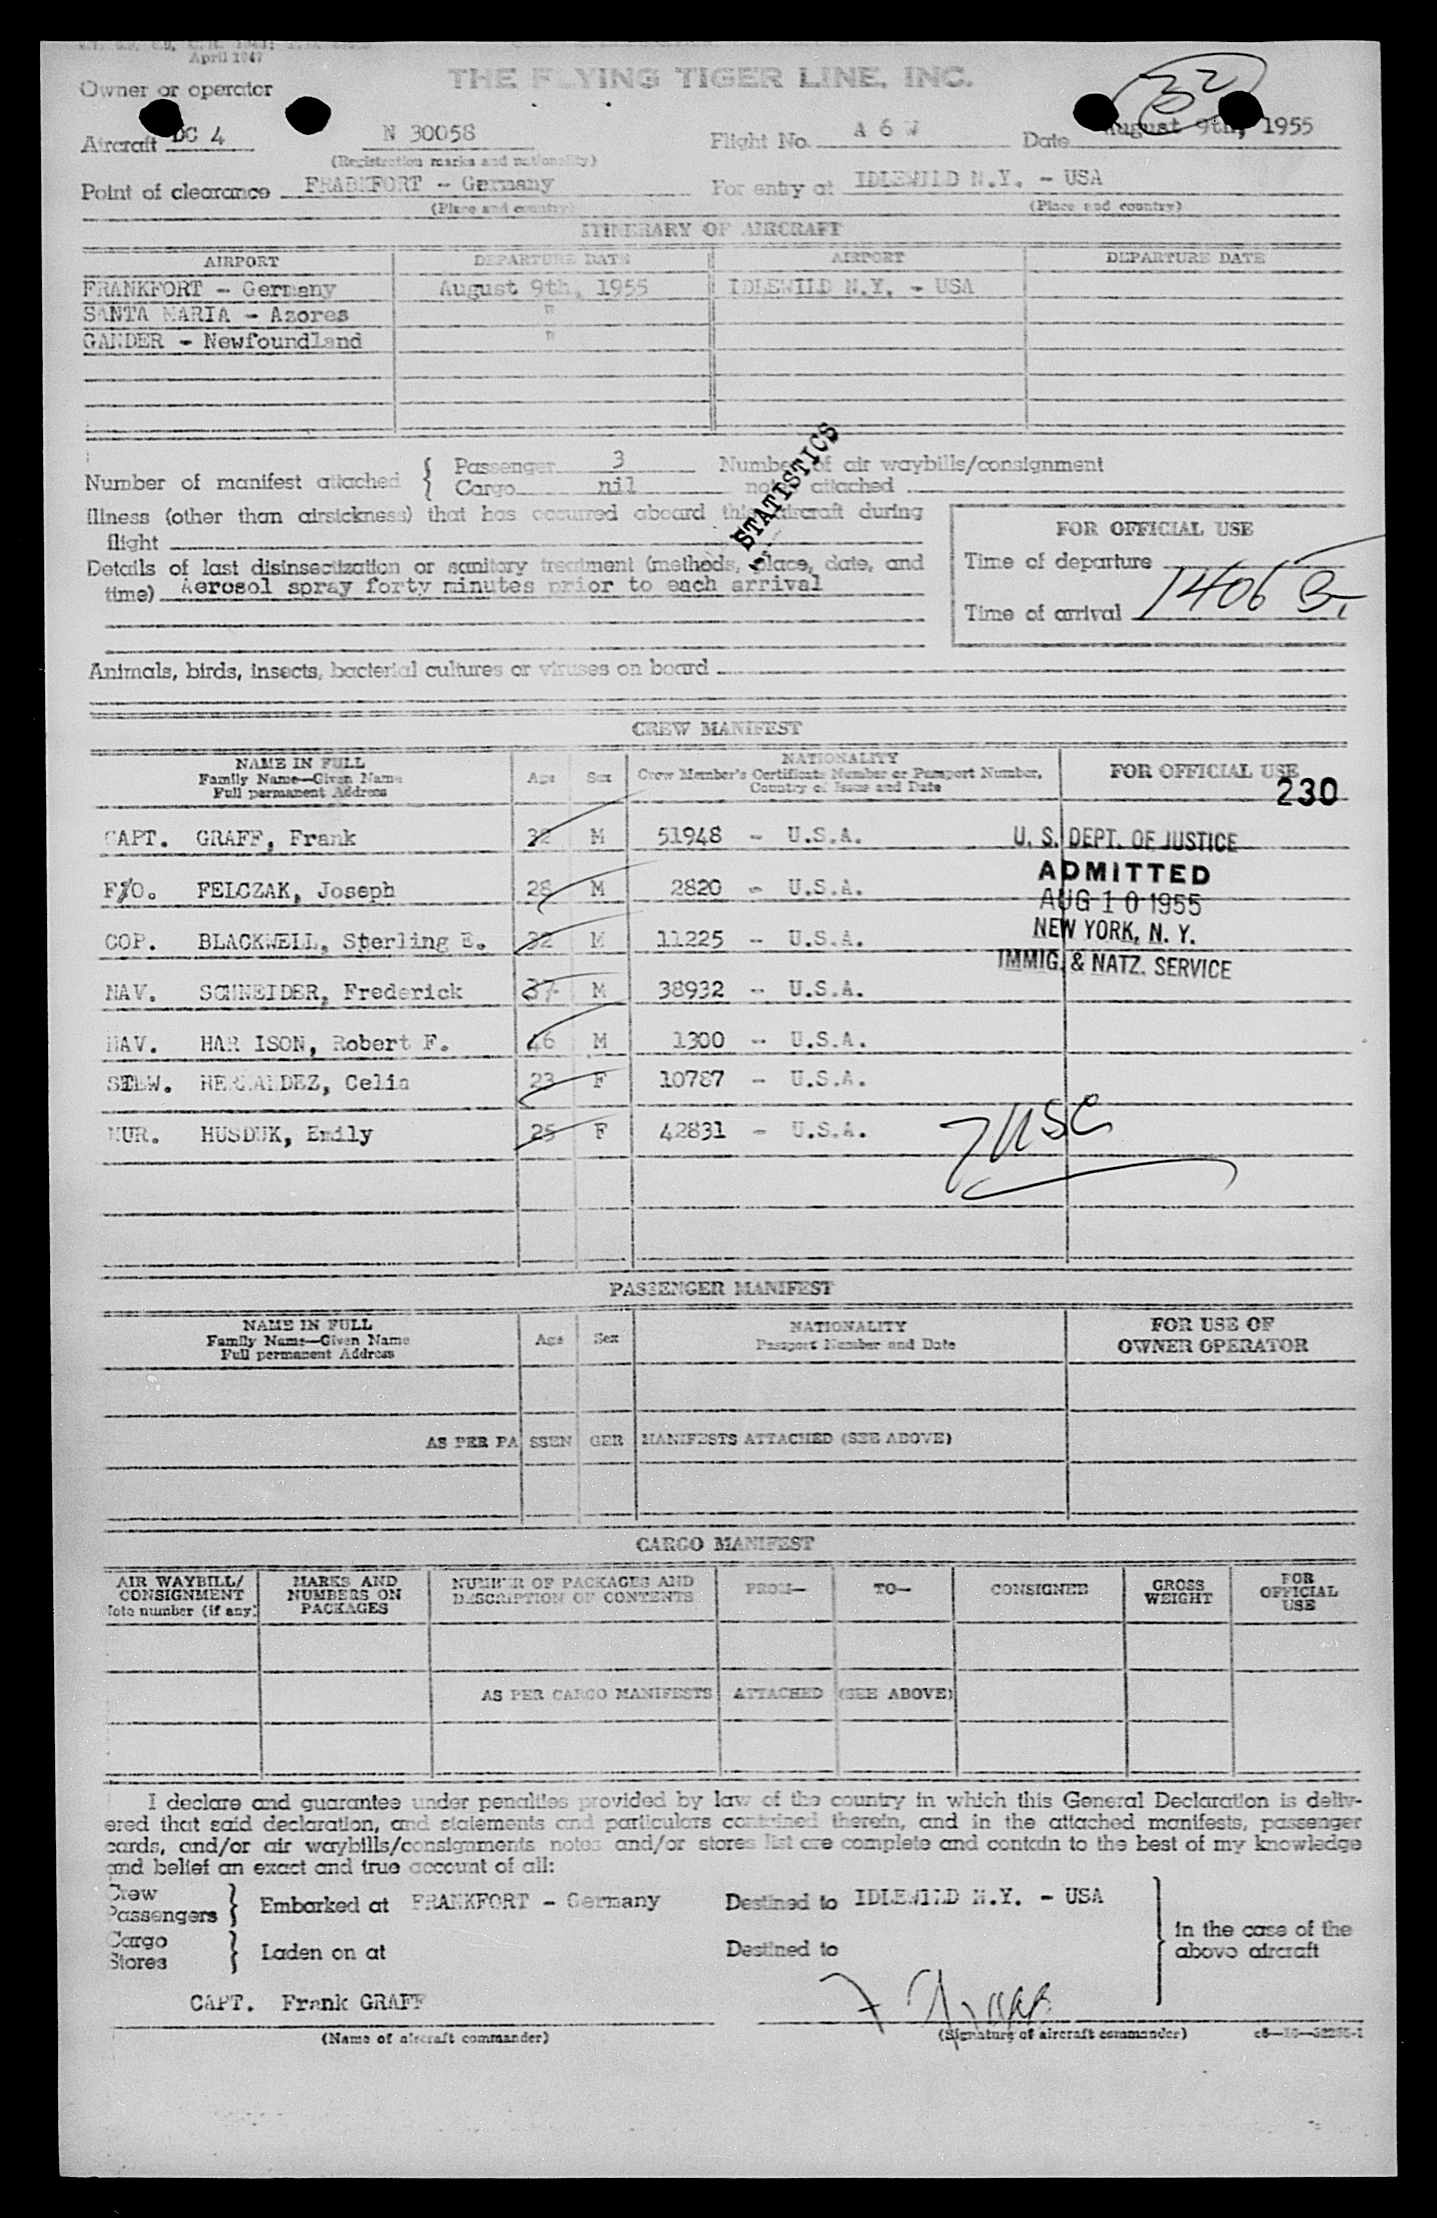 April 1947
THE FLYING TIGER LINE, INC.
Owner or operator
32
Aircraft DC 4 N 30058 Flight No. A 6 W Date August 9th, 1955
(Registration marks and nationality)
Point of clearance FRANKFORT - Germany For entry at IDLEWILD N.Y. - USA
(Place and country) (Place and country)
ITINERARY OF AIRCRAFT
AIRPORT DEPARTURE DATE AIRPORT DEPARTURE DATE
FRANKFORT - Germany August 9th, 1955 IDLEWILD N.Y. - USA
SANTA MARIA - Azores "
GANDER - Newfoundland "
STATISTICS
Number of manifest attached { Passenger 3 Number of air waybills/consignment
Cargo nil notes attached
Illness (other than airsickness) that has occurred aboard this aircraft during
flight
Details of last disinsectization or sanitary treatment (methods, place, date, and
time) Aerosol spray forty minutes prior to each arrival
FOR OFFICIAL USE
Time of departure
Time of arrival 1406
Animals, birds, insects, bacterial cultures or viruses on board
CREW MANIFEST
NAME IN FULL
Family Name—Given Name
Full permanent Address
Age Sex
NATIONALITY
Crew Member's Certificate Number or Passport Number,
Country of Issue and Date
FOR OFFICIAL USE
230
CAPT. GRAFF, Frank 32 M 51948 - U.S.A.
F/O. FELCZAK, Joseph 28 M 2820 - U.S.A.
COP. BLACKWELL, Sterling E. 32 M 11225 - U.S.A.
NAV. SCHNEIDER, Frederick 37 M 38932 - U.S.A.
NAV. HAR ISON, Robert F. 46 M 1300 - U.S.A.
STEW. HERNANDEZ, Celia 23 F 10787 - U.S.A.
NUR. HUSDUK, Emily 25 F 42831 - U.S.A.
U. S. DEPT. OF JUSTICE
ADMITTED
AUG 10 1955
NEW YORK, N. Y.
IMMIG. & NATZ. SERVICE
7 USC
PASSENGER MANIFEST
NAME IN FULL
Family Name—Given Name
Full permanent Address
Age Sex
NATIONALITY
Passport Number and Date
FOR USE OF
OWNER OPERATOR
AS PER PASSENGER MANIFESTS ATTACHED (SEE ABOVE)
CARGO MANIFEST
AIR WAYBILL/
CONSIGNMENT
Note number (if any)
MARKS AND
NUMBERS ON
PACKAGES
NUMBER OF PACKAGES AND
DESCRIPTION OF CONTENTS
FROM— TO— CONSIGNEE
GROSS
WEIGHT
FOR
OFFICIAL
USE
AS PER CARGO MANIFESTS ATTACHED (SEE ABOVE)
I declare and guarantee under penalties provided by law of the country in which this General Declaration is deliv-
ered that said declaration, and statements and particulars contained therein, and in the attached manifests, passenger
cards, and/or air waybills/consignments notes and/or stores list are complete and contain to the best of my knowledge
and belief an exact and true account of all:
Crew
Passengers } Embarked at FRANKFORT - Germany Destined to IDLEWILD N.Y. - USA
Cargo
Stores } Laden on at Destined to
} in the case of the
above aircraft
CAPT. Frank GRAFF F Graff
(Name of aircraft commander) (Signature of aircraft commander)